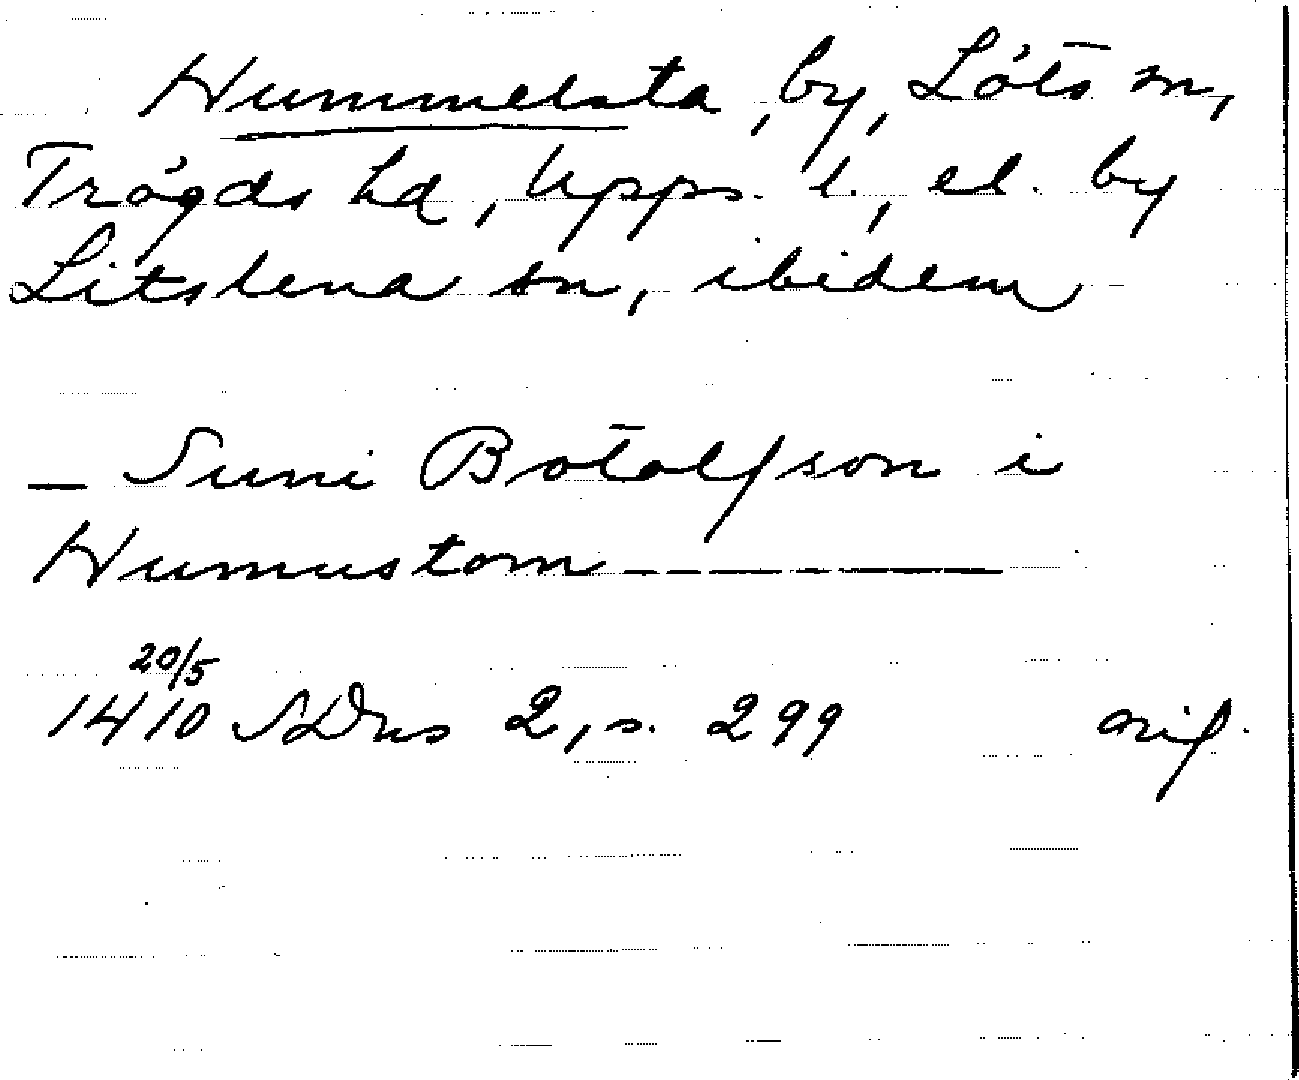 Hummelsta, by, Löts sn,
Trögds hd, Upps. l., el. by
Litslena sn, ibidem
– Suni Botolfson i
Humustom – – – – –
20/5
1410 SDns 2, s. 299